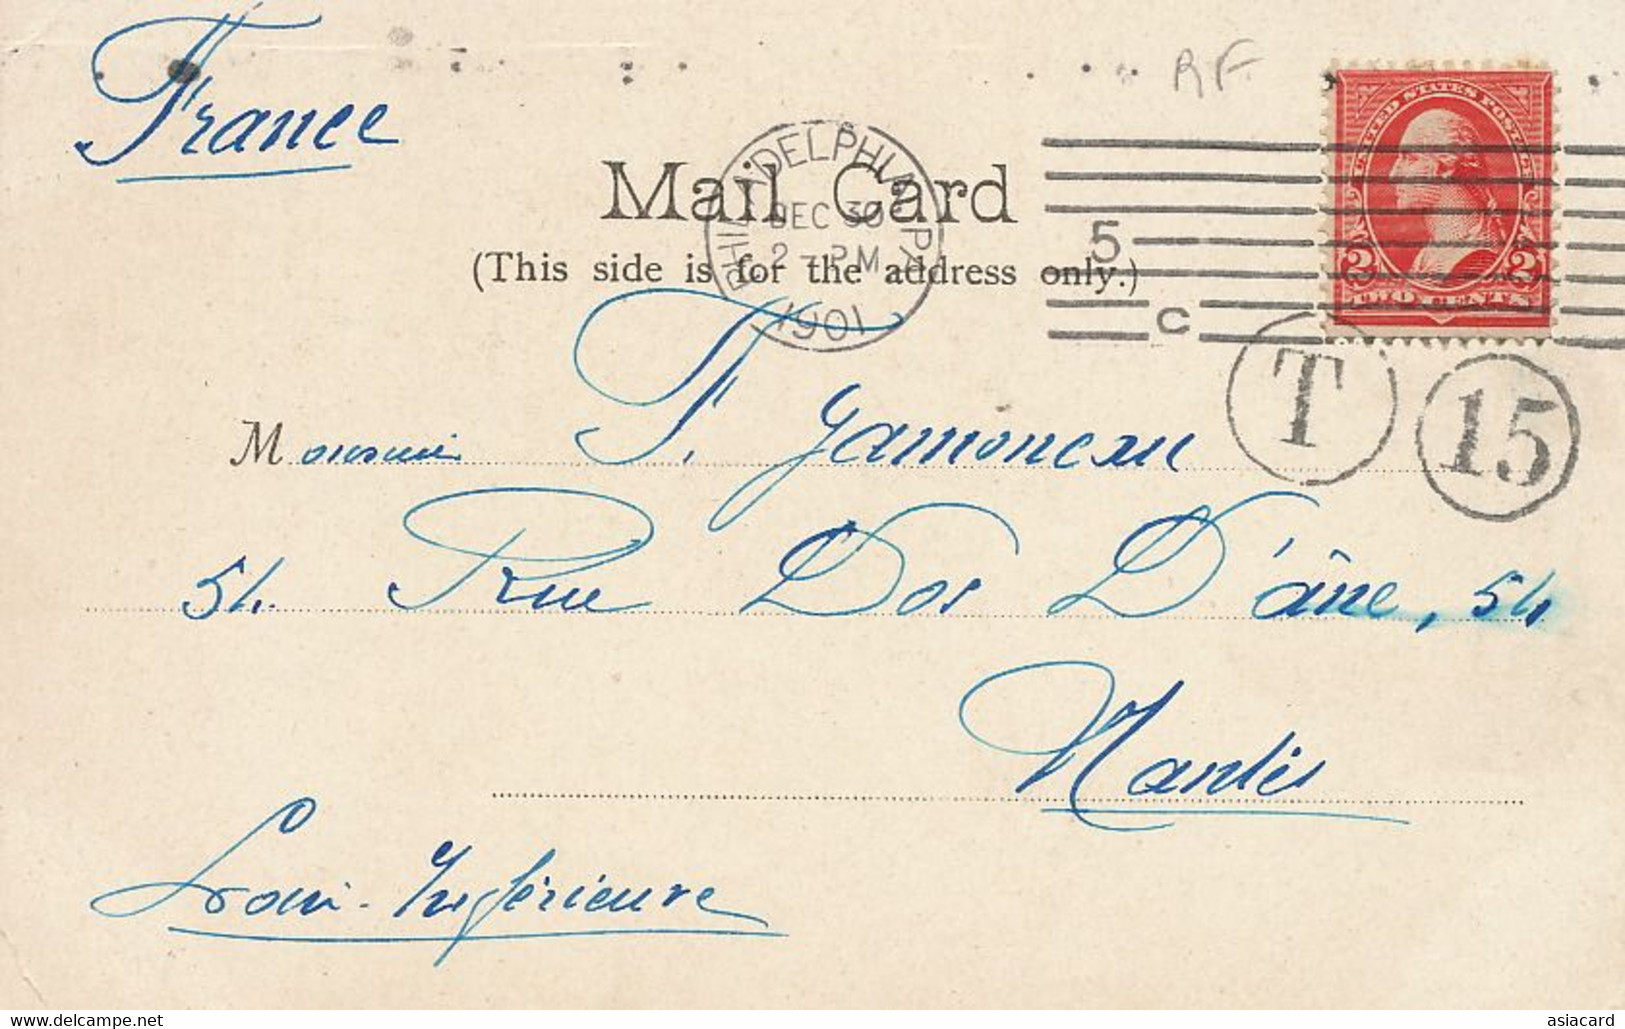 France
RF
UNITED STATES POSTAGE
2 2
TWO CENTS
Mail Card
(This side is for the address only.)
PHILADELPHIA, PA.
DEC 30
2 - PM
1901
5
C
T
15
Monsieur F. Gamoneau
54. Rue Dos D'âne, 54
Nantes
Loire-Inférieure
www.delcampe.net
asiacard